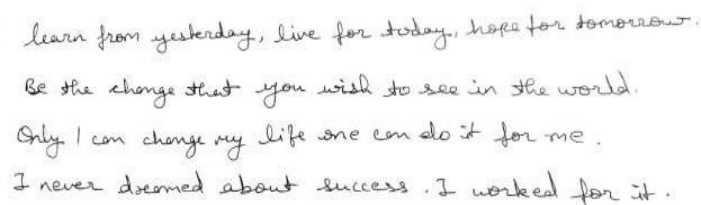 learn from yesterday, live for today, hope for tomorrow.
Be the change that you wish to see in the world.
Only I can change my life one can do it for me.
I never dreamed about success. I worked for it.